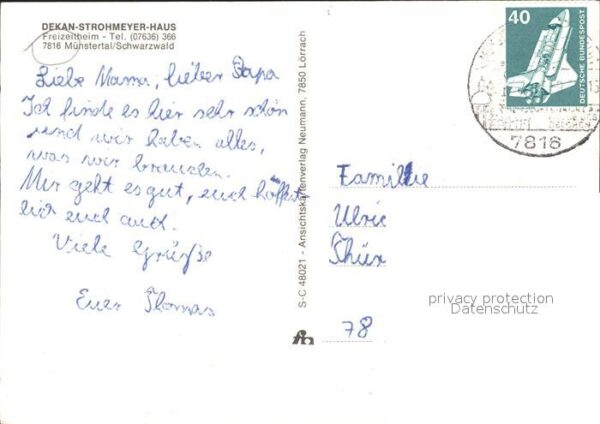 DEKAN-STROHMEYER-HAUS
Freizeitheim - Tel. (07636) 366
7816 Münstertal/Schwarzwald
Liebe Mama, lieber Papa
Ich finde es hier sehr schön
und wir haben alles,
was wir brauchen.
Mir geht es gut, euch hoffent
lich euch auch.
Viele Grüße
Euer Thomas
S-C 48021 - Ansichtskartenverlag Neumann, 7850 Lörrach
40
DEUTSCHE BUNDESPOST
7816
Familie
Ulric
78
privacy protection
Datenschutz